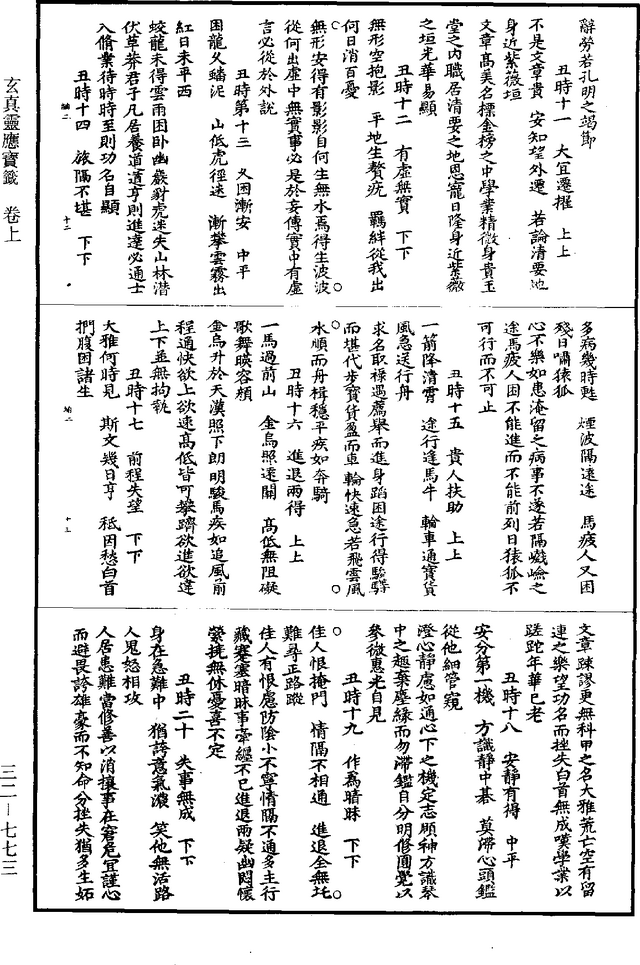 玄真靈應寶籤　卷上
三二—七七三
辭勞若孔明之竭節
丑時十一　大宜遷擢　上上
不是文章貴　安知望外遷　若論清要地
身近紫薇垣
文章高美名標金榜之中學業精微身貴玉
堂之內職居清要之地恩寵日隆身近紫薇
之垣光華易顯
丑時十二　有虛無實　下下
無形空抱影　平地生贅疣　羈絆從我出
何日消百憂
無形安得有影影自何生無水焉得生波波
從何出虛中無實事必是於妄傳實中有虛
言必從於外說
丑時第十三　久困漸安　中平
困龍久蟠泥　山低虎徑迷　漸攀雲霧出
紅日未平西
蛟龍未得雲雨困臥幽巖豺虎迷失山林潛
伏草莽君子凡居養道道亨則進達必通士
人脩業待時時至則功名自顯
丑時十四　旅隔不堪　下下
多病幾時甦　煙波隔遠途　馬疲人又困
殘日嘯猿狐
心不樂如患淹留之病事不遂若隔巇嶮之
途馬疲人困不能進而不能前列日猿狐不
可行而不可止
丑時十五　貴人扶助　上上
一箭降清霄　途行逢馬牛　輪車通寶貨
風急送行舟
求名取祿遇薦舉而進身蹈困途行得驗驛
而堪代步寶貨盈而車輪快速急若飛雲風
水順而舟楫穩平疾如奔騎
丑時十六　進退兩得　上上
一馬過前山　金烏照遠關　高低無阻礙
歌舞暎容顏
金烏升於天漢照下朗明駿馬疾如追風前
程通快欲上欲速高低皆可攀躋欲進欲達
上下並無拘執
丑時十七　前程失望　下下
大雅何時見　斯文幾日亨　秪因愁白首
捫腹困諸生
文章踈謬更無科甲之名大雅荒亡空有留
連之樂望功名而挫失白首無成嘆學業以
蹉跎年華已老
丑時十八　安靜有得　中平
安分第一機　方識靜中碁　莫滯心頭鑑
從他細管窺
澄心靜慮如通心下之機定志願神方識琴
中之趣棄塵緣而勿滯鑑自分明修圓覺以
參微惠光自見
丑時十九　作為暗昧　下下
佳人恨掩門　情隔不相通　進退全無托
難尋正路蹤
佳人有恨慮防陰小不寧情隔不通多主行
藏塞塞暗昧事牽纏不已進退兩疑幽悶懷
縈挠無休憂喜不定
丑時二十　失事無成　下下
身在急難中　猶誇意氣濃　笑他無活路
人鬼怒相攻
人居患難當修善以消攘事在窘危宜謹心
而避畏誇雄豪而不知命分挫失猶多生妬